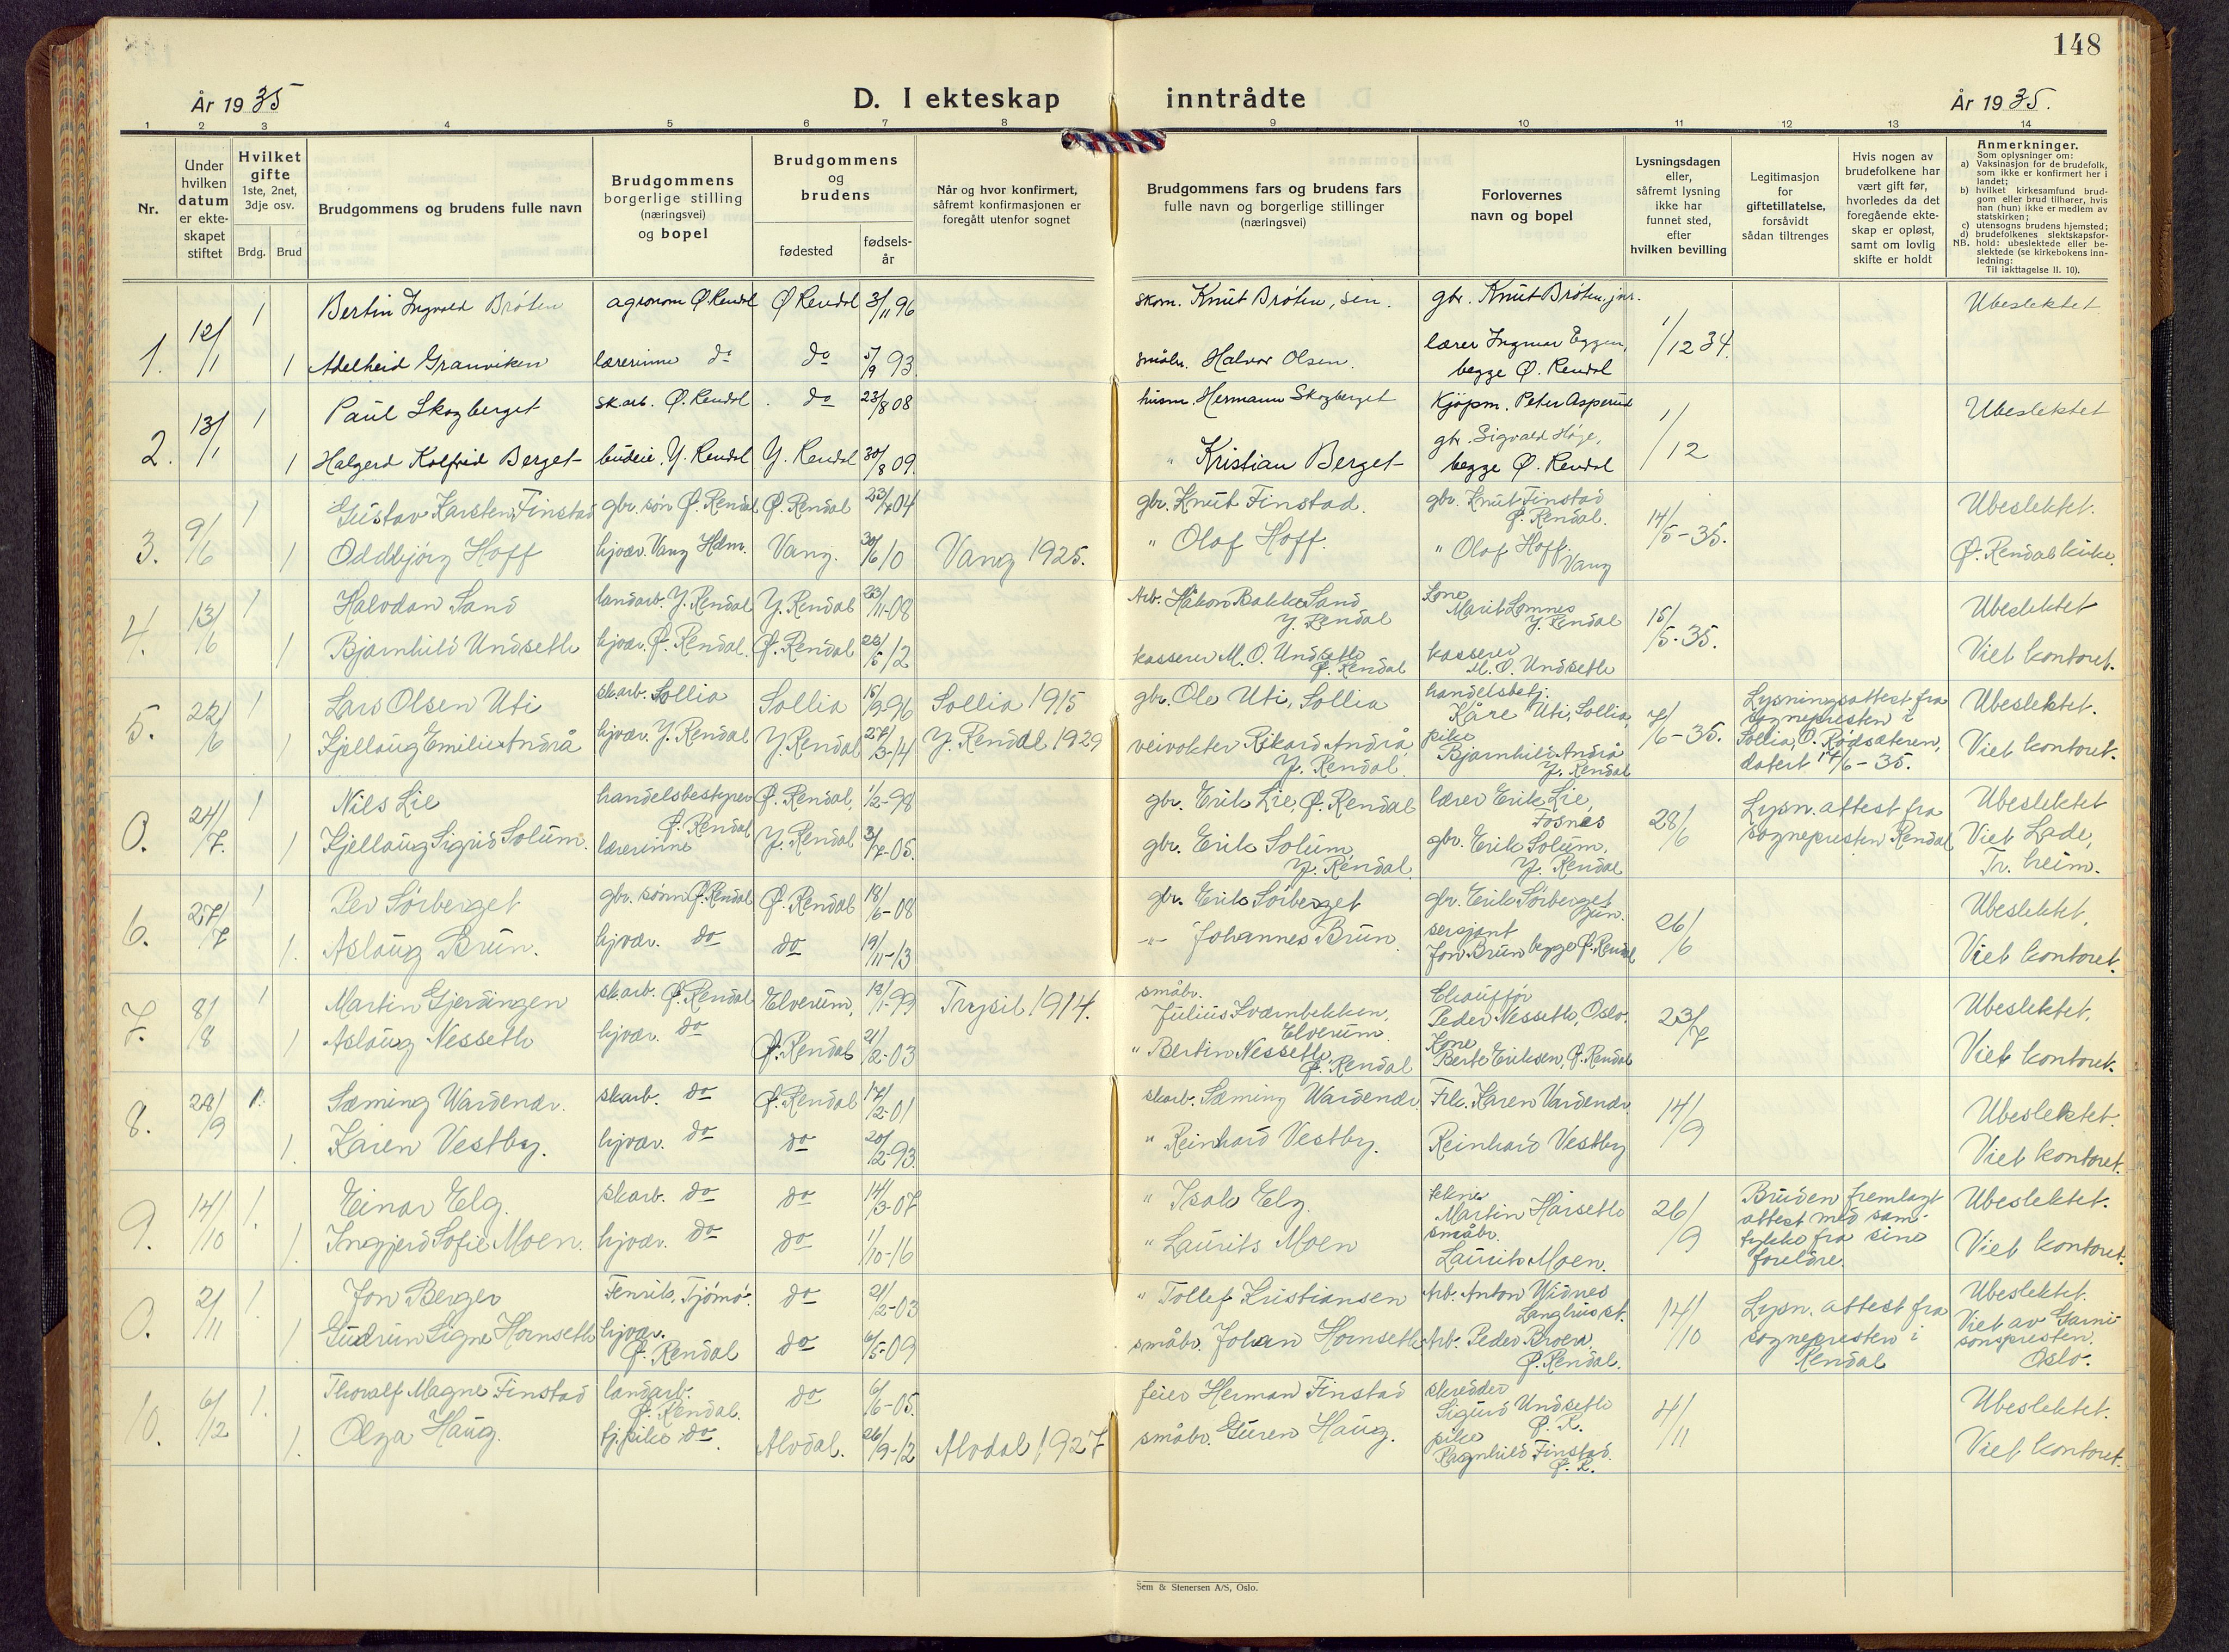 148
År 1935
D. I ekteskap inntrådte
År 1935.
1 2 3 4 5 6 7 8 9 10 11 12 13 14
Nr.
Under hvilken datum er ekte-skapet stiftet
Hvilket gifte
1ste, 2net, 3dje osv.
Brdg. Brud
Brudgommens og brudens fulle navn
Brudgommens borgerlige stilling (næringsvei) og bopel
Brudgommens og brudens
fødested
fødsels-år
Når og hvor konfirmert, såfremt konfirmasjonen er foregått utenfor sognet
Brudgommens fars og brudens fars fulle navn og borgerlige stillinger (næringsvei)
Forlovernes navn og bopel
Lysningsdagen eller, såfremt lysning ikke har funnet sted, efter hvilken bevilling
Legitimasjon for giftetillatelse, forsåvidt sådan tiltrenges
Hvis nogen av brudefolkene har vært gift før, hvorledes da det foregående ekte-skap er opløst, samt om lovlig skifte er holdt
Anmerkninger.
Som oplysninger om:
a) Vaksinasjon for de brudefolk, som ikke er konfirmert her i landet;
b) hvilket kirkesamfund brud-gom eller brud tilhører, hvis han (hun) ikke er medlem av statskirken;
c) utensogns brudens hjemsted;
d) brudefolkenes slektskapsfor-
NB. hold: ubeslektede eller be-slektede (se kirkebokens inn-ledning:
Til iakttagelse II. 10).
1. 12/1 1 Bertin Ingvald Bråten agronom Ø Rendal Ø Rendal 3/11 96 skom. Knut Bråten, sen. gbr. Knut Bråten, jnr. 1/12 34. Ubeslektet
1 Adelheid Granviken lærerinne do do 5/9 93 småbr. Halvor Olsen. lærer Ingmar Eggen, begge Ø. Rendal
2. 13/1 1 Paul Skogberget sk.arb. Ø. Rendal do 23/8 08 husm. Hermann Skogberget Kjøpm. Peter Asperud 1/12 Ubeslektet
1 Halgerd Kolfrid Berget budeie, Y. Rendal Y. Rendal 30/8 09. " Kristian Berget gbr. Sigvald Høye, begge Ø. Rendal
3. 9/6 1 Gustav Karsten Finstad gbr. søn Ø. Rendal Ø. Rendal 23/7 04 gbr. Knut Finstad. gbr. Knut Finstad Ø. Rendal. 14/5-35. Ubeslektet.
1 Oddbjörg Hoff hjvær. Vang Hdm. Vang. 30/6 10 Vang 1925. " Olof Hoff. " Olof Hoff, Vang Ø. Rendal kirke.
4. 13/6 1 Halvdan Sand landarb. Y. Rendal Y. Rendal 23/11-08 Arb. Håkon Bakke Sand Y. Rendal Kone Marit Lomnes Y. Rendal 15/5-35. Ubeslektet
1 Bjarnhild Undseth hjvær. Ø. Rendal. Ø. Rendal 22/5 12 kasserer M. O. Undseth Ø. Rendal kasserer M. O. Undseth Viet kontoret.
5. 22/6 1 Lars Olsen Uti sk.arb. Sollia Sollia 15/9-96 Sollia 1915 gbr. Ole Uti, Sollia handelsbetj. Kåre Uti, Sollia, 7/6-35. Lysningsattest fra sognepresten i Sollia, O. Rødsæteren, datert 17/6-35. Ubeslektet.
1 Kjellaug Emilie Andrå hjvær. Y. Rendal Y. Rendal 27/3-14 Y. Rendal 1929 veivokter Rikard Andrå, Y. Rendal. pike Bjarnhild Andrå Y. Rendal Viet kontoret.
0. 24/7. 1 Nils Lie handelsbestyrer Ø. Rendal Ø. Rendal, 1/2-98 gbr. Erik Lie, Ø. Rendal lærer Erik Lie, Fosnes 28/6 Lysn. attest fra sognepresten Rendal Ubeslektet
1 Kjellaug Sigrid Solum. lærerinne Y. Rendal 3/7-05. gbr. Erik Solum, Y. Rendal. gbr. Erik Solum, Y. Rendal Viet Lade, Tr. heim.
6. 27/7 1 Per Sørberget gbr. sønn Ø. Rendal Ø. Rendal 18/6-08 gbr. Erik Sørberget gbr. Erik Sørberget jun. 26/6 Ubeslektet,
1. Aslaug Brun. hjvær. do do 19/11-13 -"- Johannes Brun. sersjant Jon Brun begge Ø. Rendal Viet kontoret.
7. 8/8 1 Martin Gjerdingen sk.arb. Ø. Rendal Elverum, 18/1-99 Trysil 1914. småbr. Julius Kværnbekken, Elverum. Chauffør Peder Nesseth, Oslo. 23/7 Ubeslektet.
1 Aslaug Nesseth hjvær. do Ø. Rendal 21/2-03 " Bertin Nesseth, Ø. Rendal Kone Berte Eriksen, Ø. Rendal Viet kontoret.
8. 28/9 1. Sæming Wardenær. skarb. do Ø. Rendal 17/2-01 skarb. Sæming Wardenær. Frk. Karen Vardenær. 14/9 Ubeslektet.
1. Karen Vestby. hjvær. do do 20/2-93. " Reinhard Vestby. Reinhard Vestby Viet kontoret.
9. 14/10 1. Einar Elg. skarb. do do 14/3-07 " Isak Elg. Martin Harseth 26/9 Bruden fremlagt attest med sam-tykke fra sine foreldre. Ubeslektet.
1. Ingjerd Sofie Moen. hjvær. do do 1/10-16 " Laurits Moen småbr. Laurits Moen. Viet kontoret.
0. 2/11 1. Jon Berger Fenrik, Tjømø. do 21/2-03 " Tollef Kristiansen Arb. Anton Widnes 14/10 Lysn. attest fra sognepresten i Rendal Ubeslektet.
1 Gudrun Signe Hornseth hjvær. Ø. Rendal do 6/5-09 småbr. Johan Hornseth Arb. Peder Broen, Ø. Rendal. Viet av Garni-sonspresten, Oslo.
10. 6/12 1. Thoralf Magne Finstad landarb. Ø. Rendal. do 6/6-05. feier Herman Finstad skredder Sigurd Undseth Ø. R. 4/11 Ubeslektet.
1. Olga Haug. tj.pike do. Alvdal. 26/9-12 Alvdal 1927 småbr. Guren Haug. pike Ragnhild Finstad. Ø. R. Viet kontoret.
Sem & Stenersen A/S, Oslo.